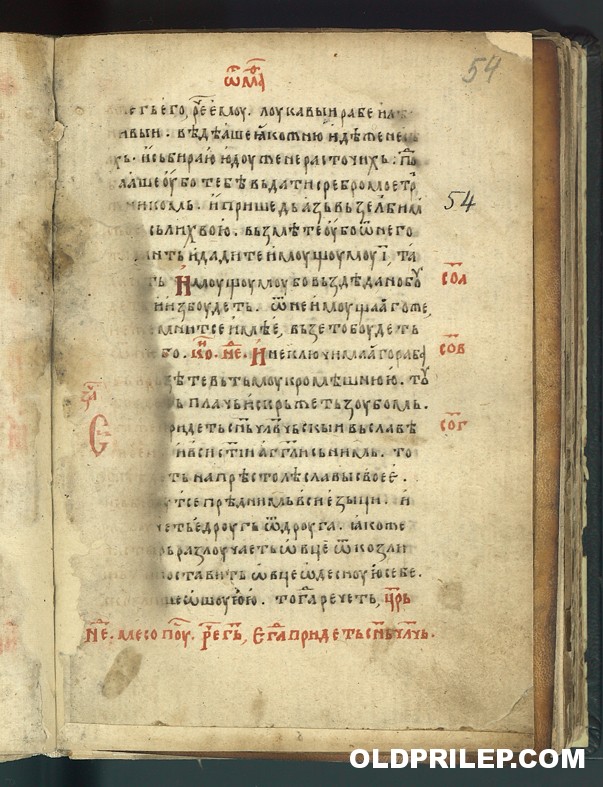 ѿ маѳ
54
его, рече емоу. лоукавыи рабе и лѣ
нивыи. вѣдѣаше ꙗко жню идѣже не
хь. и сьбираю юдоуже не расточихь. по
бааше оубо тебѣ вьдати сребро мое тр
жникомь. и пришедь азь вьзель бимь
54
сь лихвою. вьзмѣте оубо ѿ него
и дадите имоущоумоу і, та
имоущоумоу бо вездѣ дано боу
соа
и избоудеть. ѿ неимоущаагоже,
мнитсе имѣе, вьзето боудеть
бо. ко. не. и неключимааго раба
сов
те вь тьмоу кромѣшнюю. тоу
плачь и скрьжеть зоубомь.
зач
придеть снь члчьскыи вь славѣ
сог
Е
и вси стїи аггли сь нимь. то
на прѣстолѣ славы своее.
тсе прѣд нимь вси езыци. и
еть е дроугь ѿ дроуга. ꙗкоже
разлоучаеть ѡвце ѿ козли
поставить ѡвце ѡдесноую себе.
ѡшоуюю. тогда речеть, црь
не. месопоу. рече гь, егда придеть снь члчь.
OLDPRILEP.COM